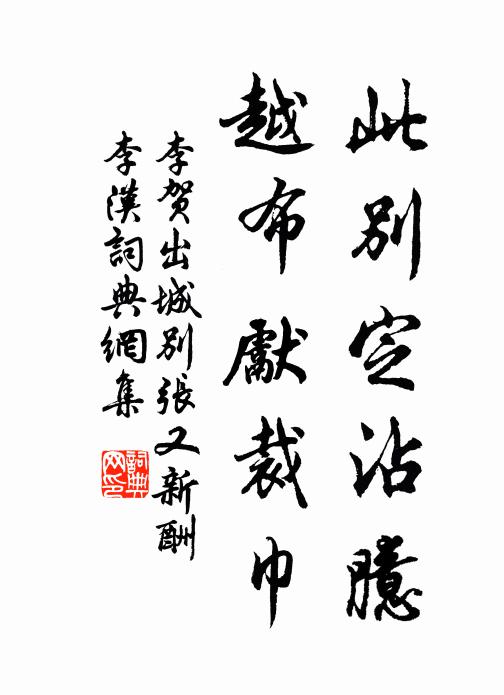 此別定沾臆
越布獻裁巾
李賀出城別張又新酬
李漢詞典網集
詞典
网印